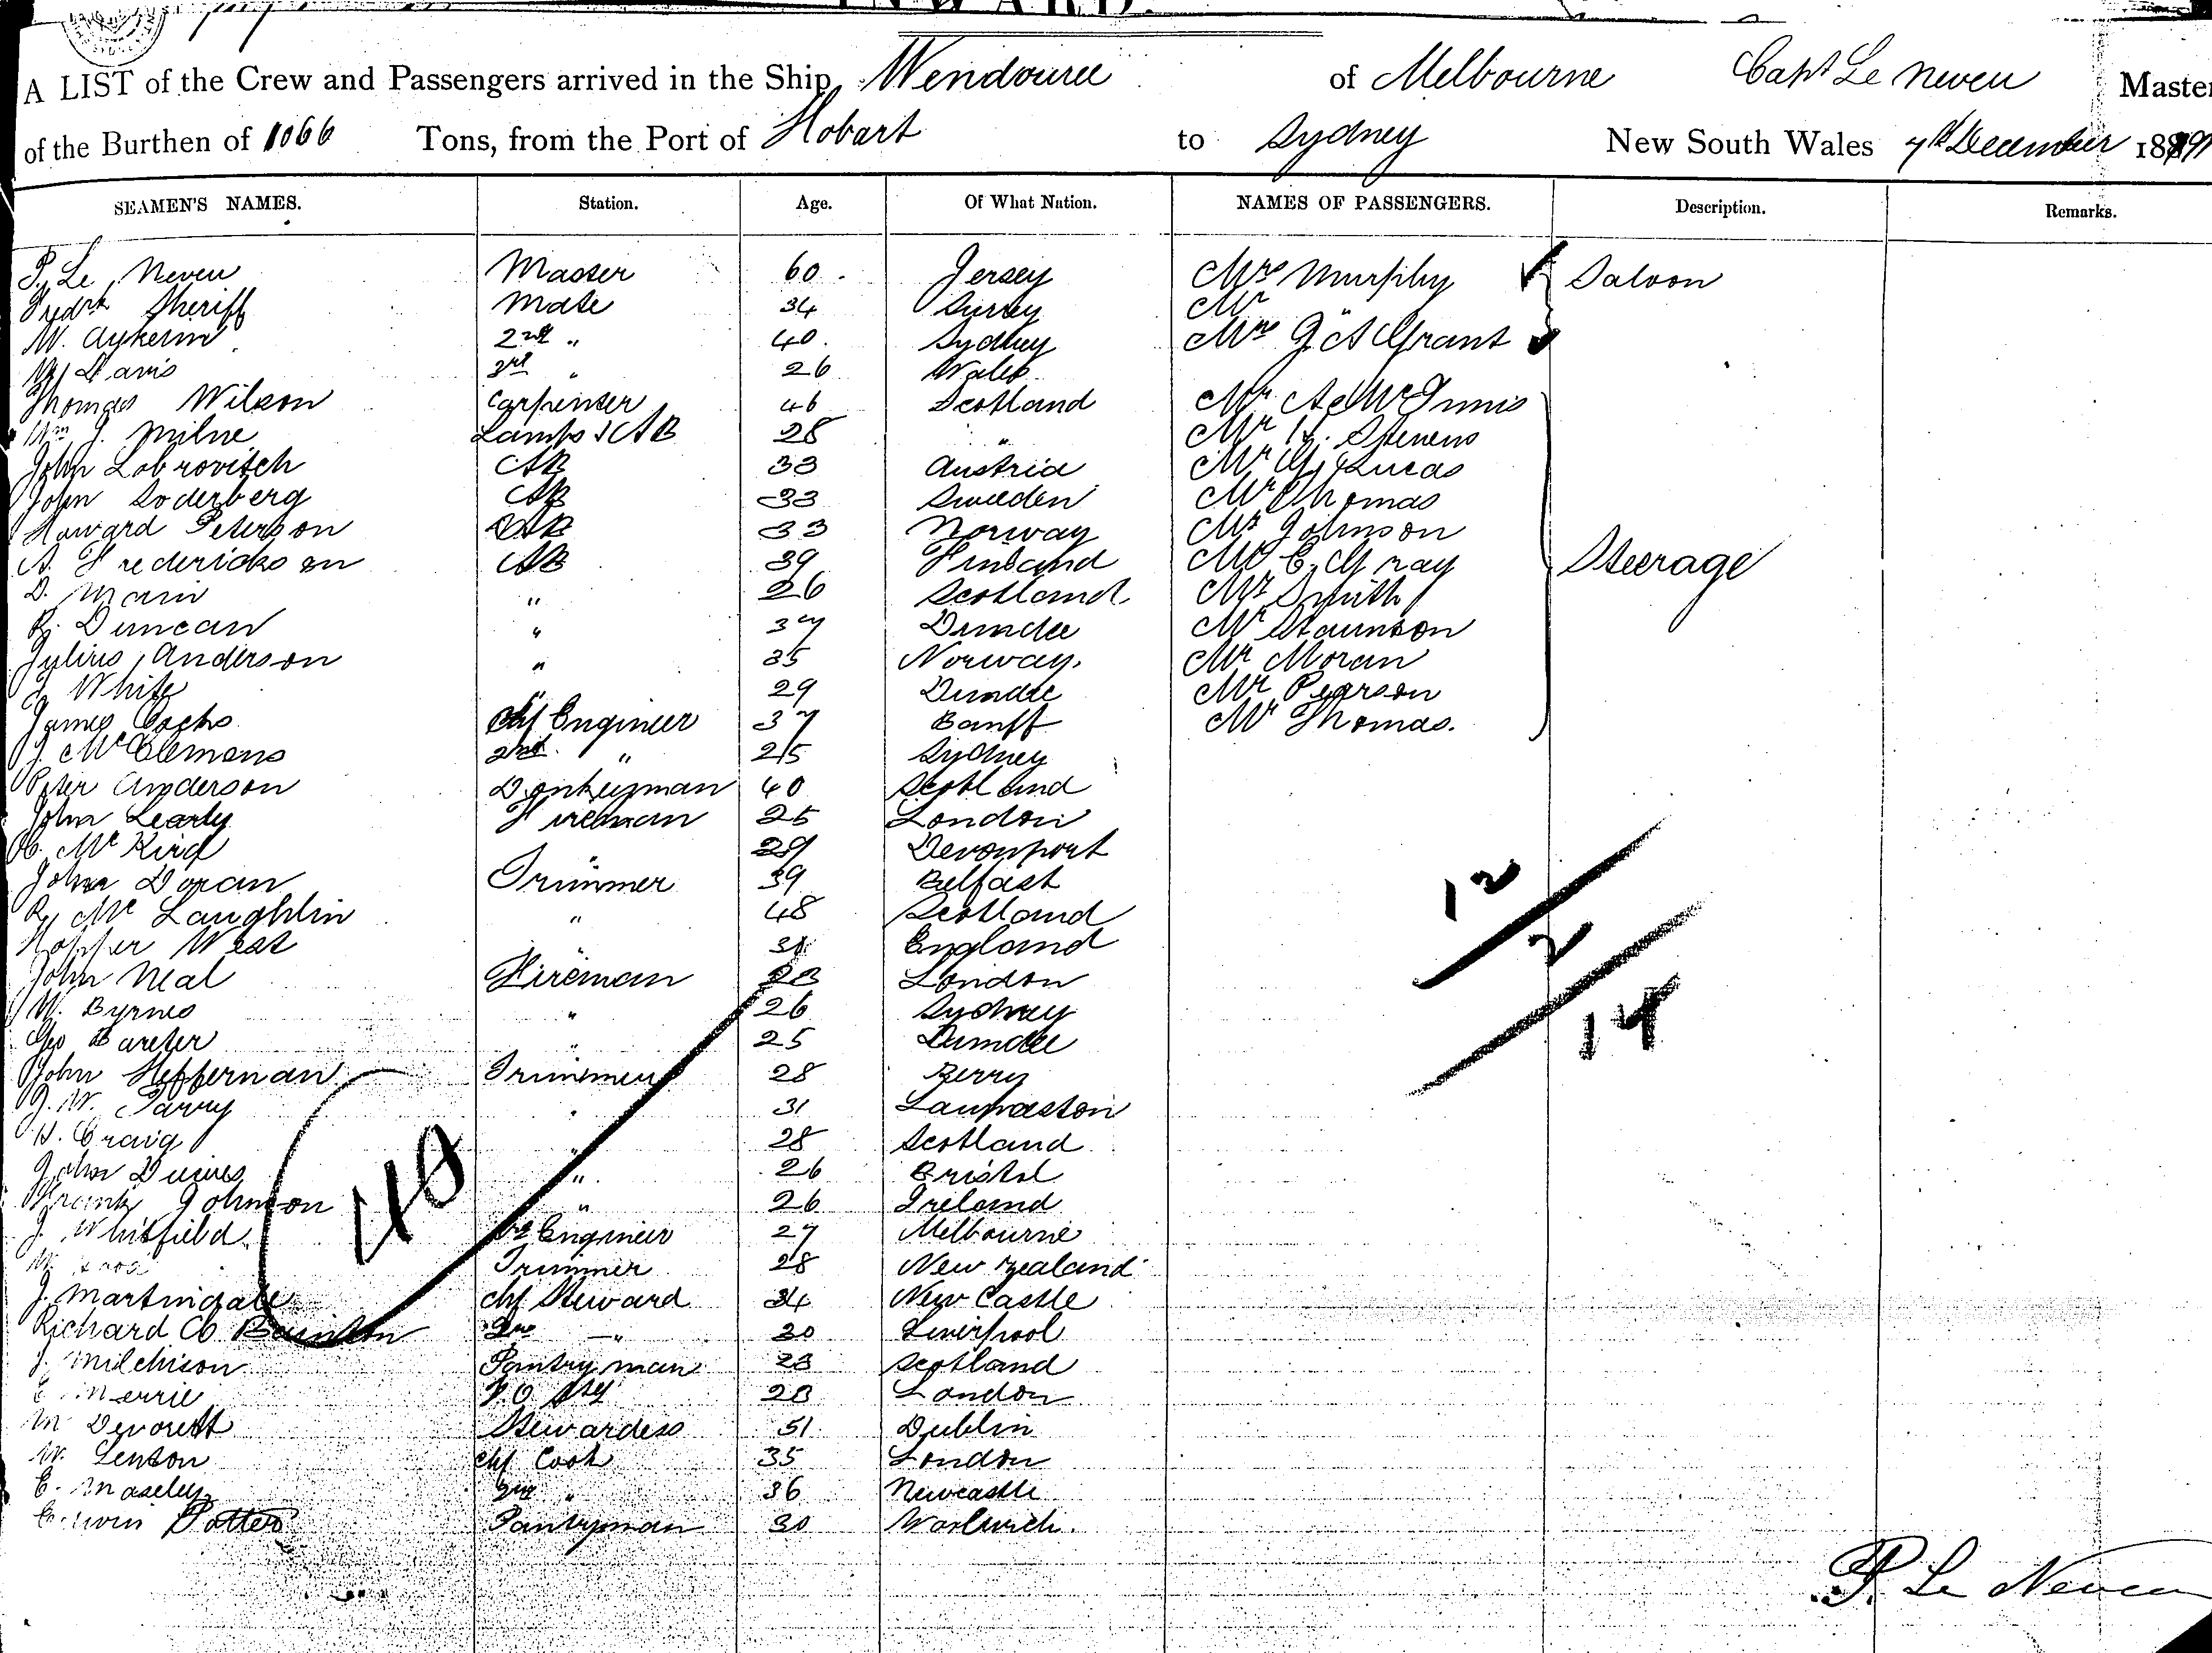 INWARD.
A LIST of the Crew and Passengers arrived in the Ship Wendouree of Melbourne Capt Le Neveu Master
of the Burthen of 1066 Tons, from the Port of Hobart to Sydney New South Wales 7th December 189
SEAMEN'S NAMES. Station. Age. Of What Nation. NAMES OF PASSENGERS. Description. Remarks.
P. Le Neveu Master 60 Jersey Mrs Murphy Saloon
Fredrk Sheriff Mate 34 Surrey Mr "
W. 2nd " 40 Sydney Mrs G A Grant
Davis 3rd " 26 Wales
Thomas Wilson Carpenter 46 Scotland Mr A McInnis
Wm J. Milne Lamps & AB 28 " Mr H. Stevens
John Lobrovitch AB 33 Austria Mr Lucas
John Soderberg AB 33 Sweden Mr Thomas
Howard Peterson AB 33 Norway Mr Johnson
A. Fredericksen AB 39 Finland Mr C. Gray Steerage
D. Main " 26 Scotland Mr Smith
R. Duncan " 37 Dundee Mr Staunton
Julius Anderson " 35 Norway. Mr Moran
J. White " 29 Dundee Mr Pearson
James Chf Engineer 37 Banff Mr Thomas.
J. McClemens 2nd " 25 Sydney
Peter Anderson Donkeyman 40 Scotland
John Learly Fireman 25 London
McKird " 29 Devonport
John Doran Trimmer 39 Belfast
R. McLaughlin " 48 Scotland
Hopper West " England
John Neal Fireman 23 London
W. Byrnes " 26 Sydney
Geo " 25 Dundee
John Heffernan Trimmer 28
J. W. Parry " 31 Launceston
H. Craig " 28 Scotland
John " 26 Bristol
Frank Johnson " 26 Ireland
J. Whitfield Engineer 27 Melbourne
W. Trimmer 28 New Zealand
J. Martindale Chf Steward 34 New Castle
Richard " 30 Liverpool
J. Milchison Pantryman 23 Scotland
E. Merrie 23 London
M Stewardess 51 Dublin
W. Lenton Chf Cook 35 London
E. Maseley 2nd " 36 Newcastle
Potter Pantryman 30 Woolwich.
12
2
14
40
P. Le Neveu